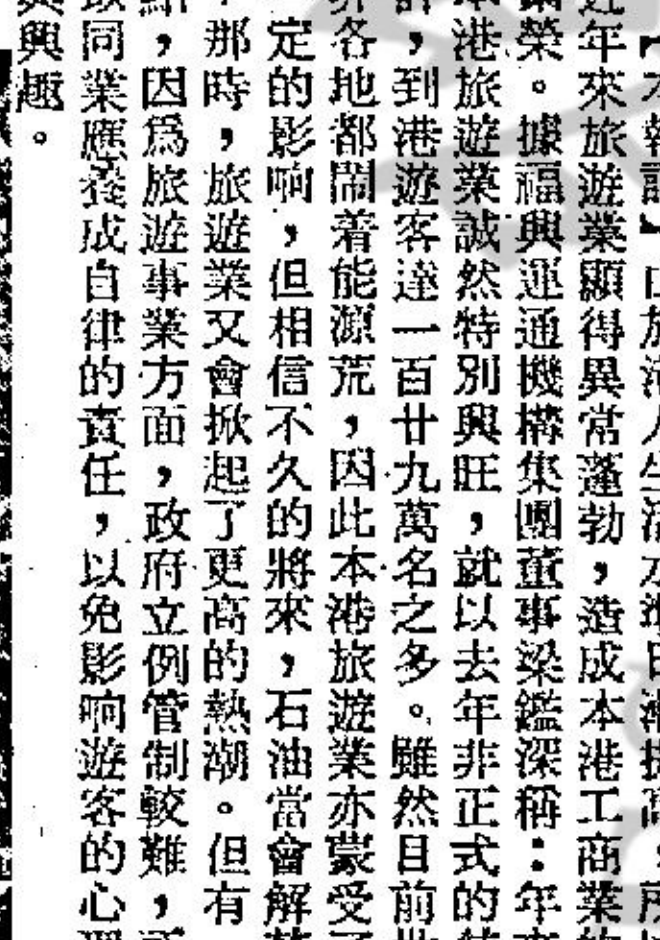 近年來旅遊業顯得異常蓬勃，造成本港工商業
榮。據福興運通機構集團董事梁鑑深稱：年
港旅遊業誠然特別興旺，就以去年非正式的
，到港遊客達一百廿九萬名之多。雖然目前
各地都鬧着能源荒，因此本港旅遊業亦蒙受
定的影响，但相信不久的將來，石油當會解
那時，旅遊業又會掀起了更高的熱潮。但有
，因爲旅遊事業方面，政府立例管制較難，
同業應養成自律的責任，以免影响遊客的心
興趣。